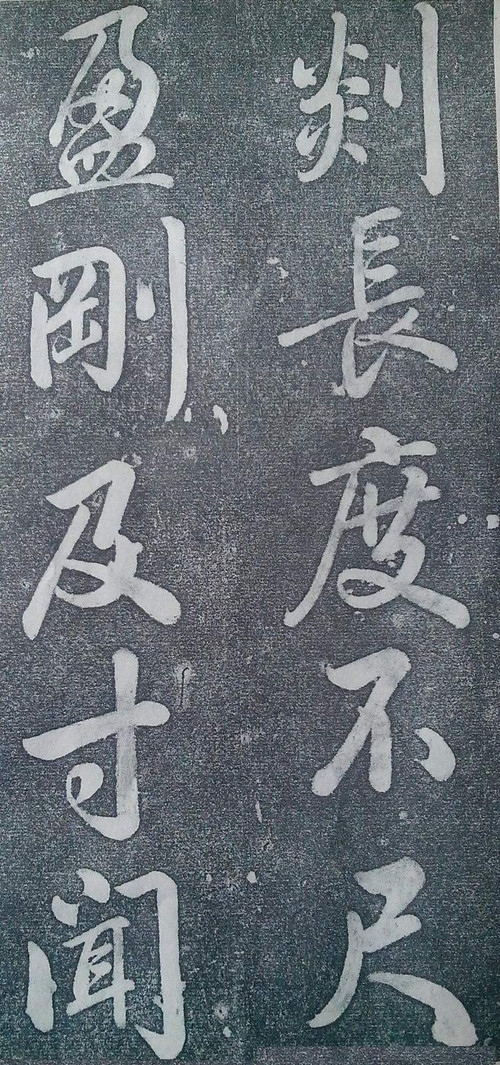 剡長度不尺
盈剛及寸聞